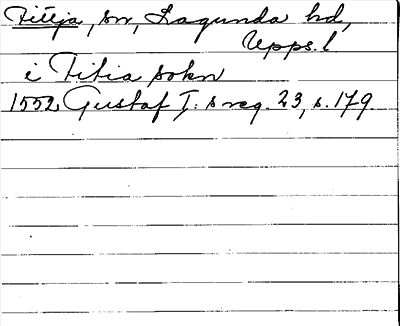 Fittja, sn, Lagunda hd,
Upps. l
i Fitia sokn
1552 Gustaf I:s reg. 23, s. 179.